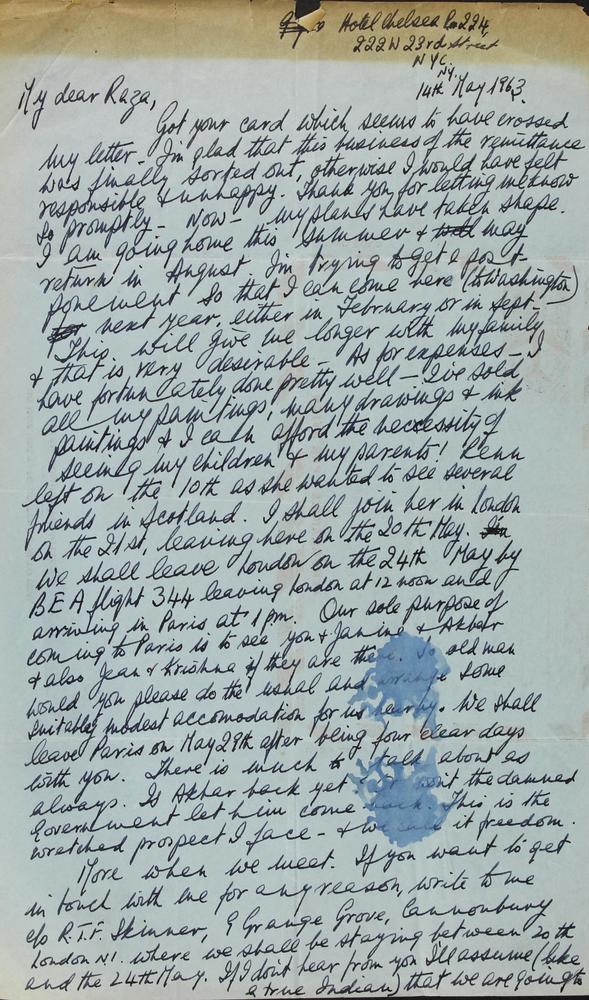 Hotel Chelsea Rm 224,
222 W 23rd Street
NYC.
NY.
14th May 1963.
My dear Raza,
Got your card which seems to have crossed
my letter - I'm glad that this business of the remittance
was finally sorted out, otherwise I would have felt
responsible & unhappy. Thank you for letting me know
so promptly - Now - my plans have taken shape.
I am going home this summer & may
return in August. I'm trying to get a post-
ponement so that I can come here (to Washington)
next year, either in February or in Sept -
This will give me longer with my family
& that is very desirable - As for expenses - I
have fortunately done pretty well - I've sold
all my paintings, many drawings & ink
paintings & I can afford the necessity of
seeing my children & my parents! Renu
left on the 10th as she wanted to see several
friends in Scotland. I shall join her in London
on the 21st, leaving here on the 20th May.
We shall leave London on the 24th May by
BEA flight 344 leaving London at 12 noon and
arriving in Paris at 1 pm. Our sole purpose of
coming to Paris is to see you & Janine & Akbar
& also Jean & Krishna if they are there. So old man
would you please do the usual and arrange some
suitably modest accomodation for us nearby. We shall
leave Paris on May 29th after being four clear days
with you. There is much to talk about as
always. Is Akbar back yet won't the damned
Government let him come back. This is the
wretched prospect I face - & we call it freedom.
More when we meet. If you want to get
in touch with me for any reason, write to me
c/o R.T.F. Skinner, 9 Grange Grove, Cannonbury
London N1. where we shall be staying between 20th
and the 24th May. If I don't hear from you I'll assume (like
a true Indian) that we are going to